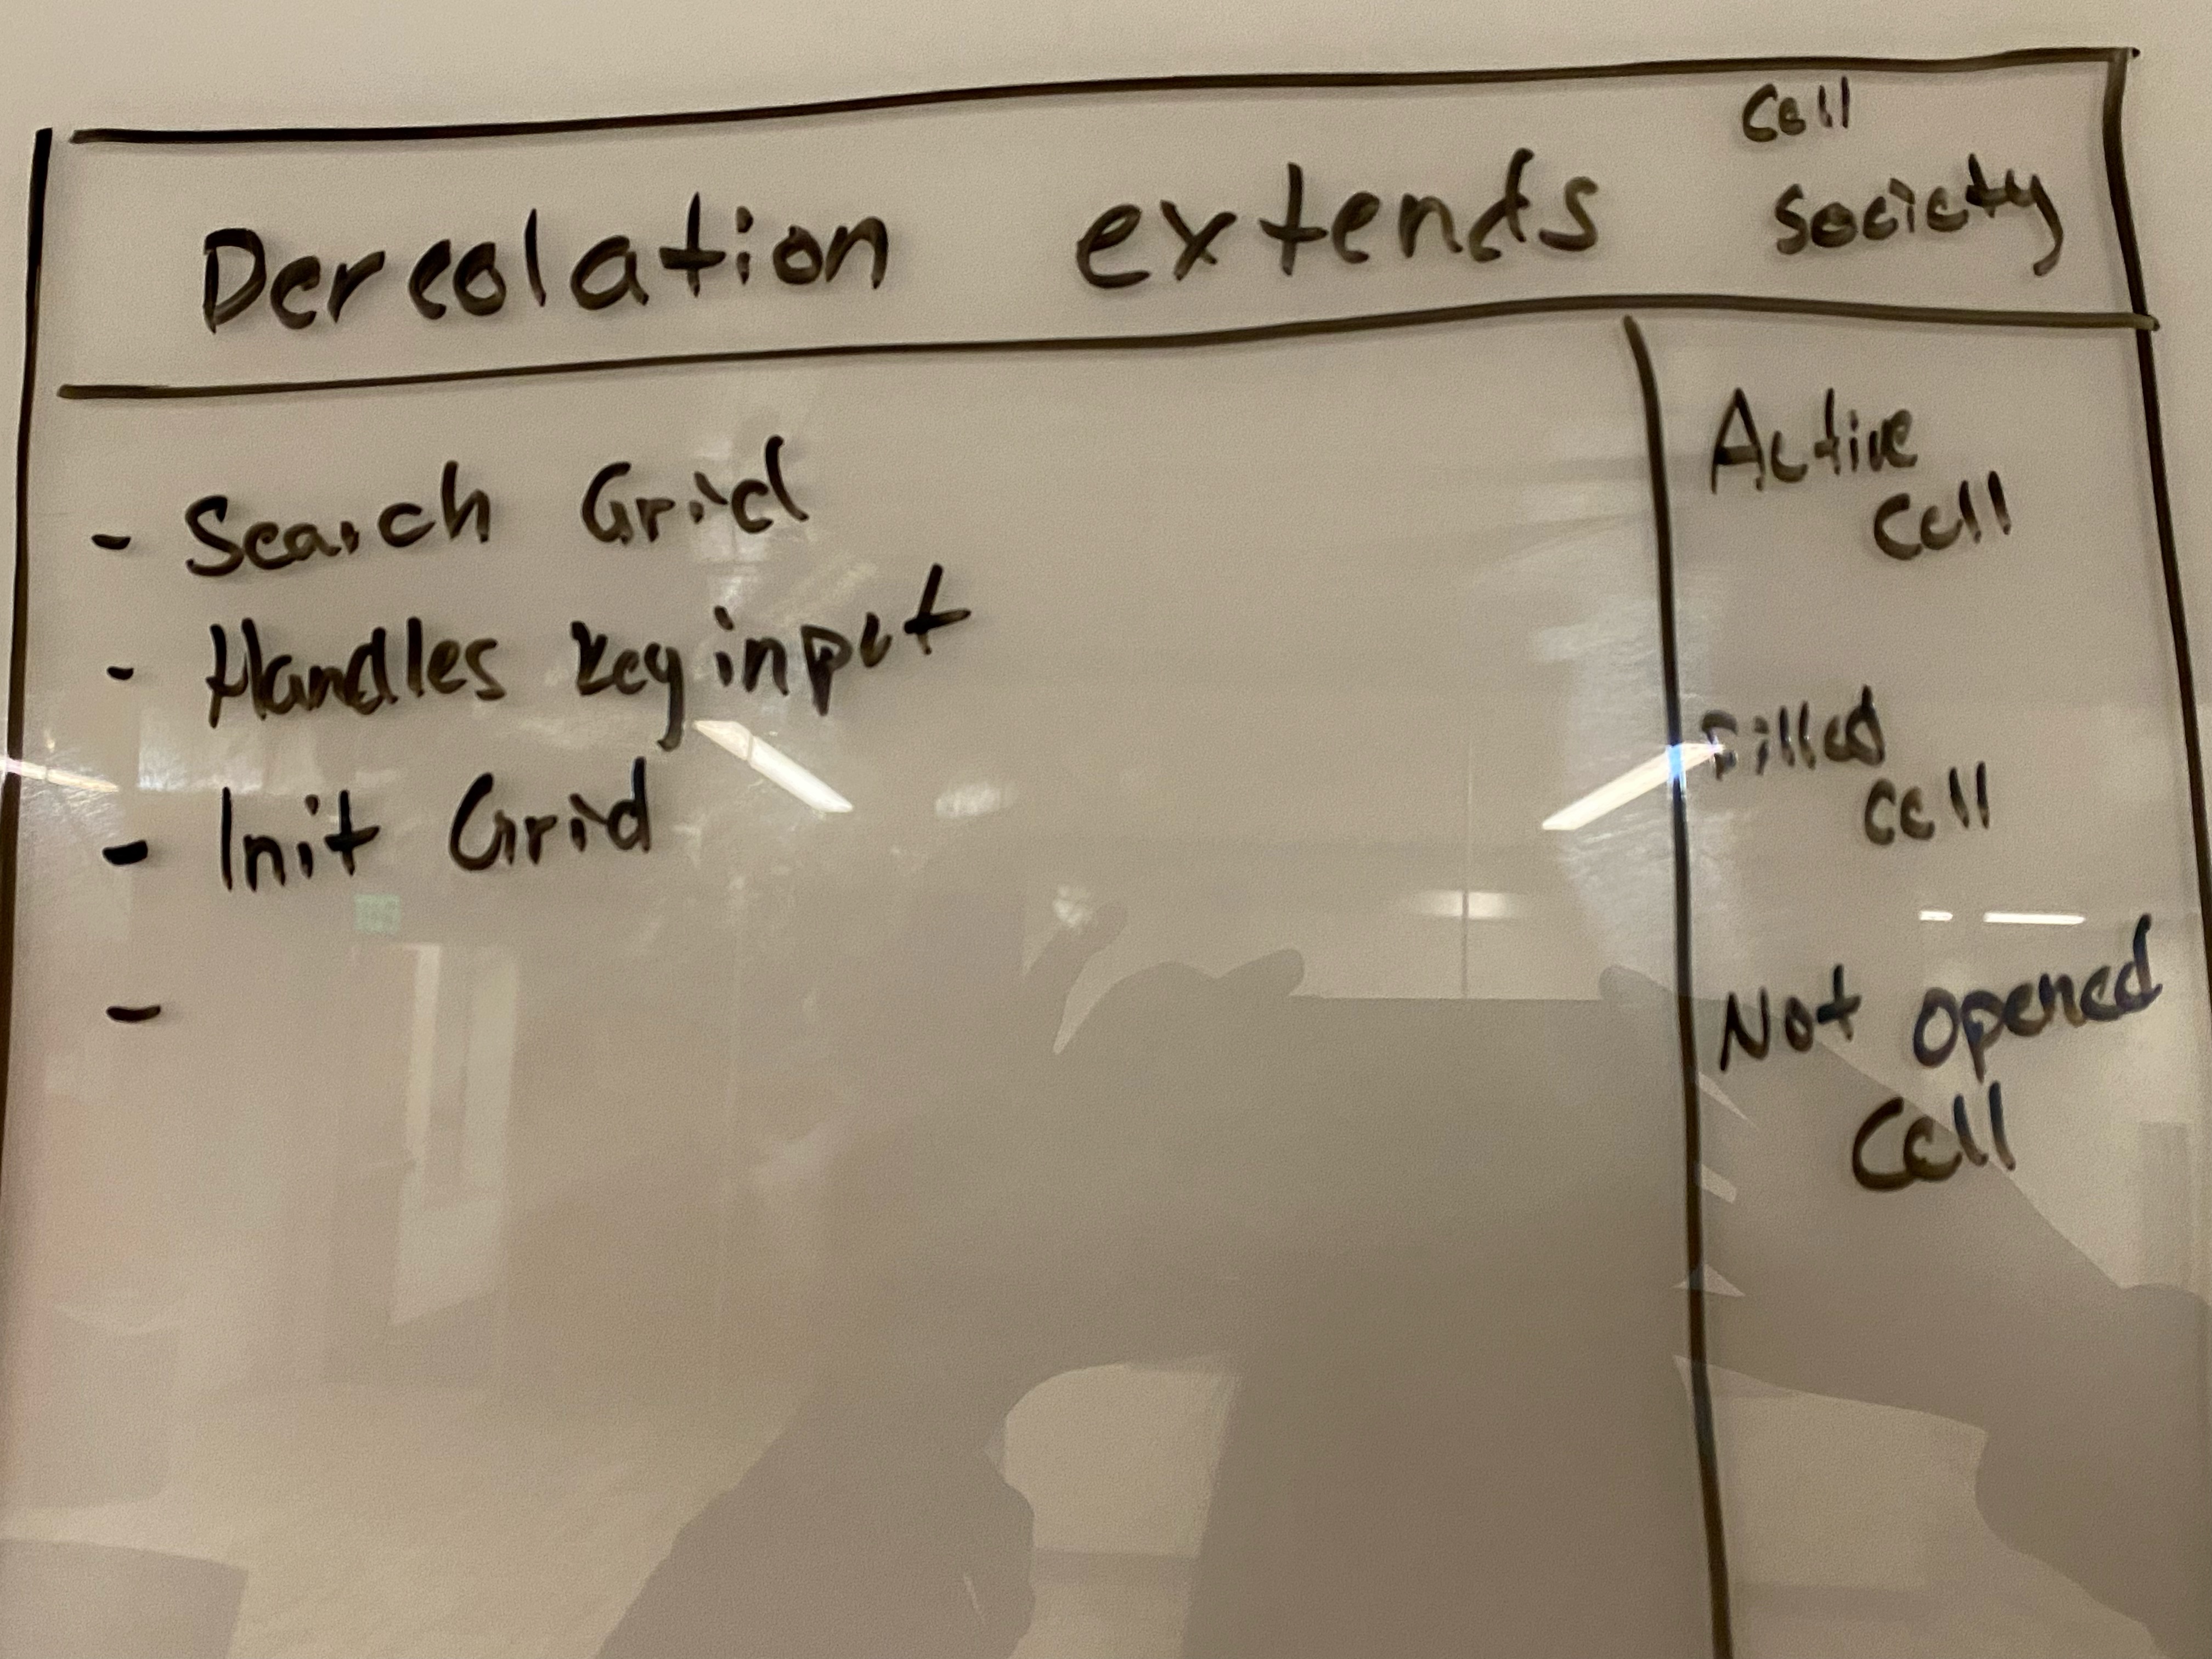 Dercolation extends Cell Society
- Search Grid
- Handles key input
- Init Grid
-
Active
Cell
Filled
Cell
Not opened
Cell